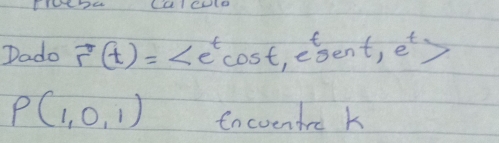 Prueba Calculo
Dado r⃗(t) = <e^t cost, e^t sent, e^t>
P(1,0,1) Encuentre k